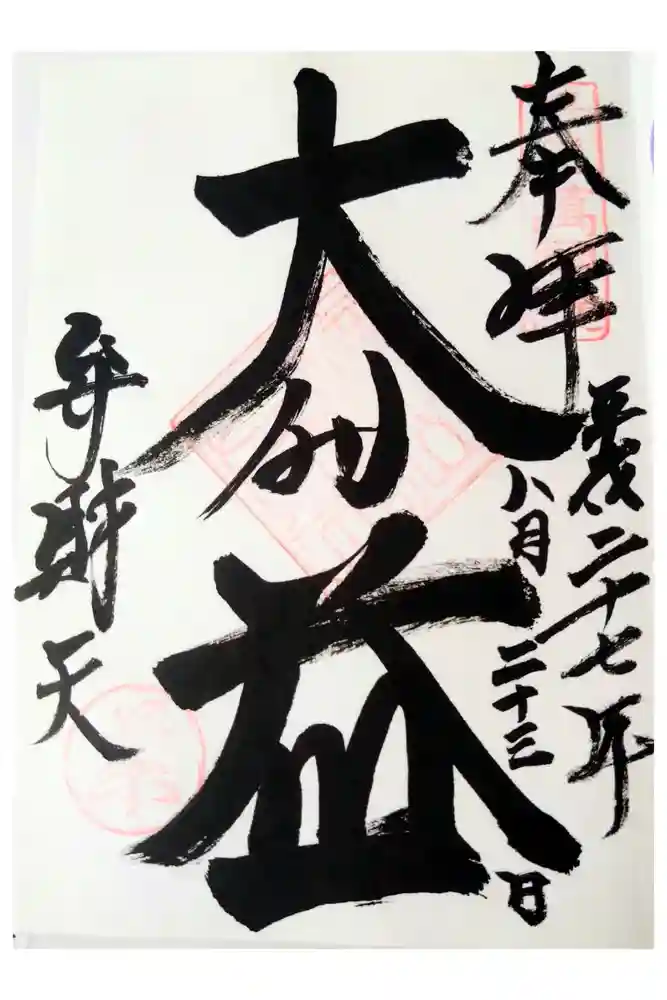 奉拝
平成二十七年
八月二十三日
大利益
弁財天